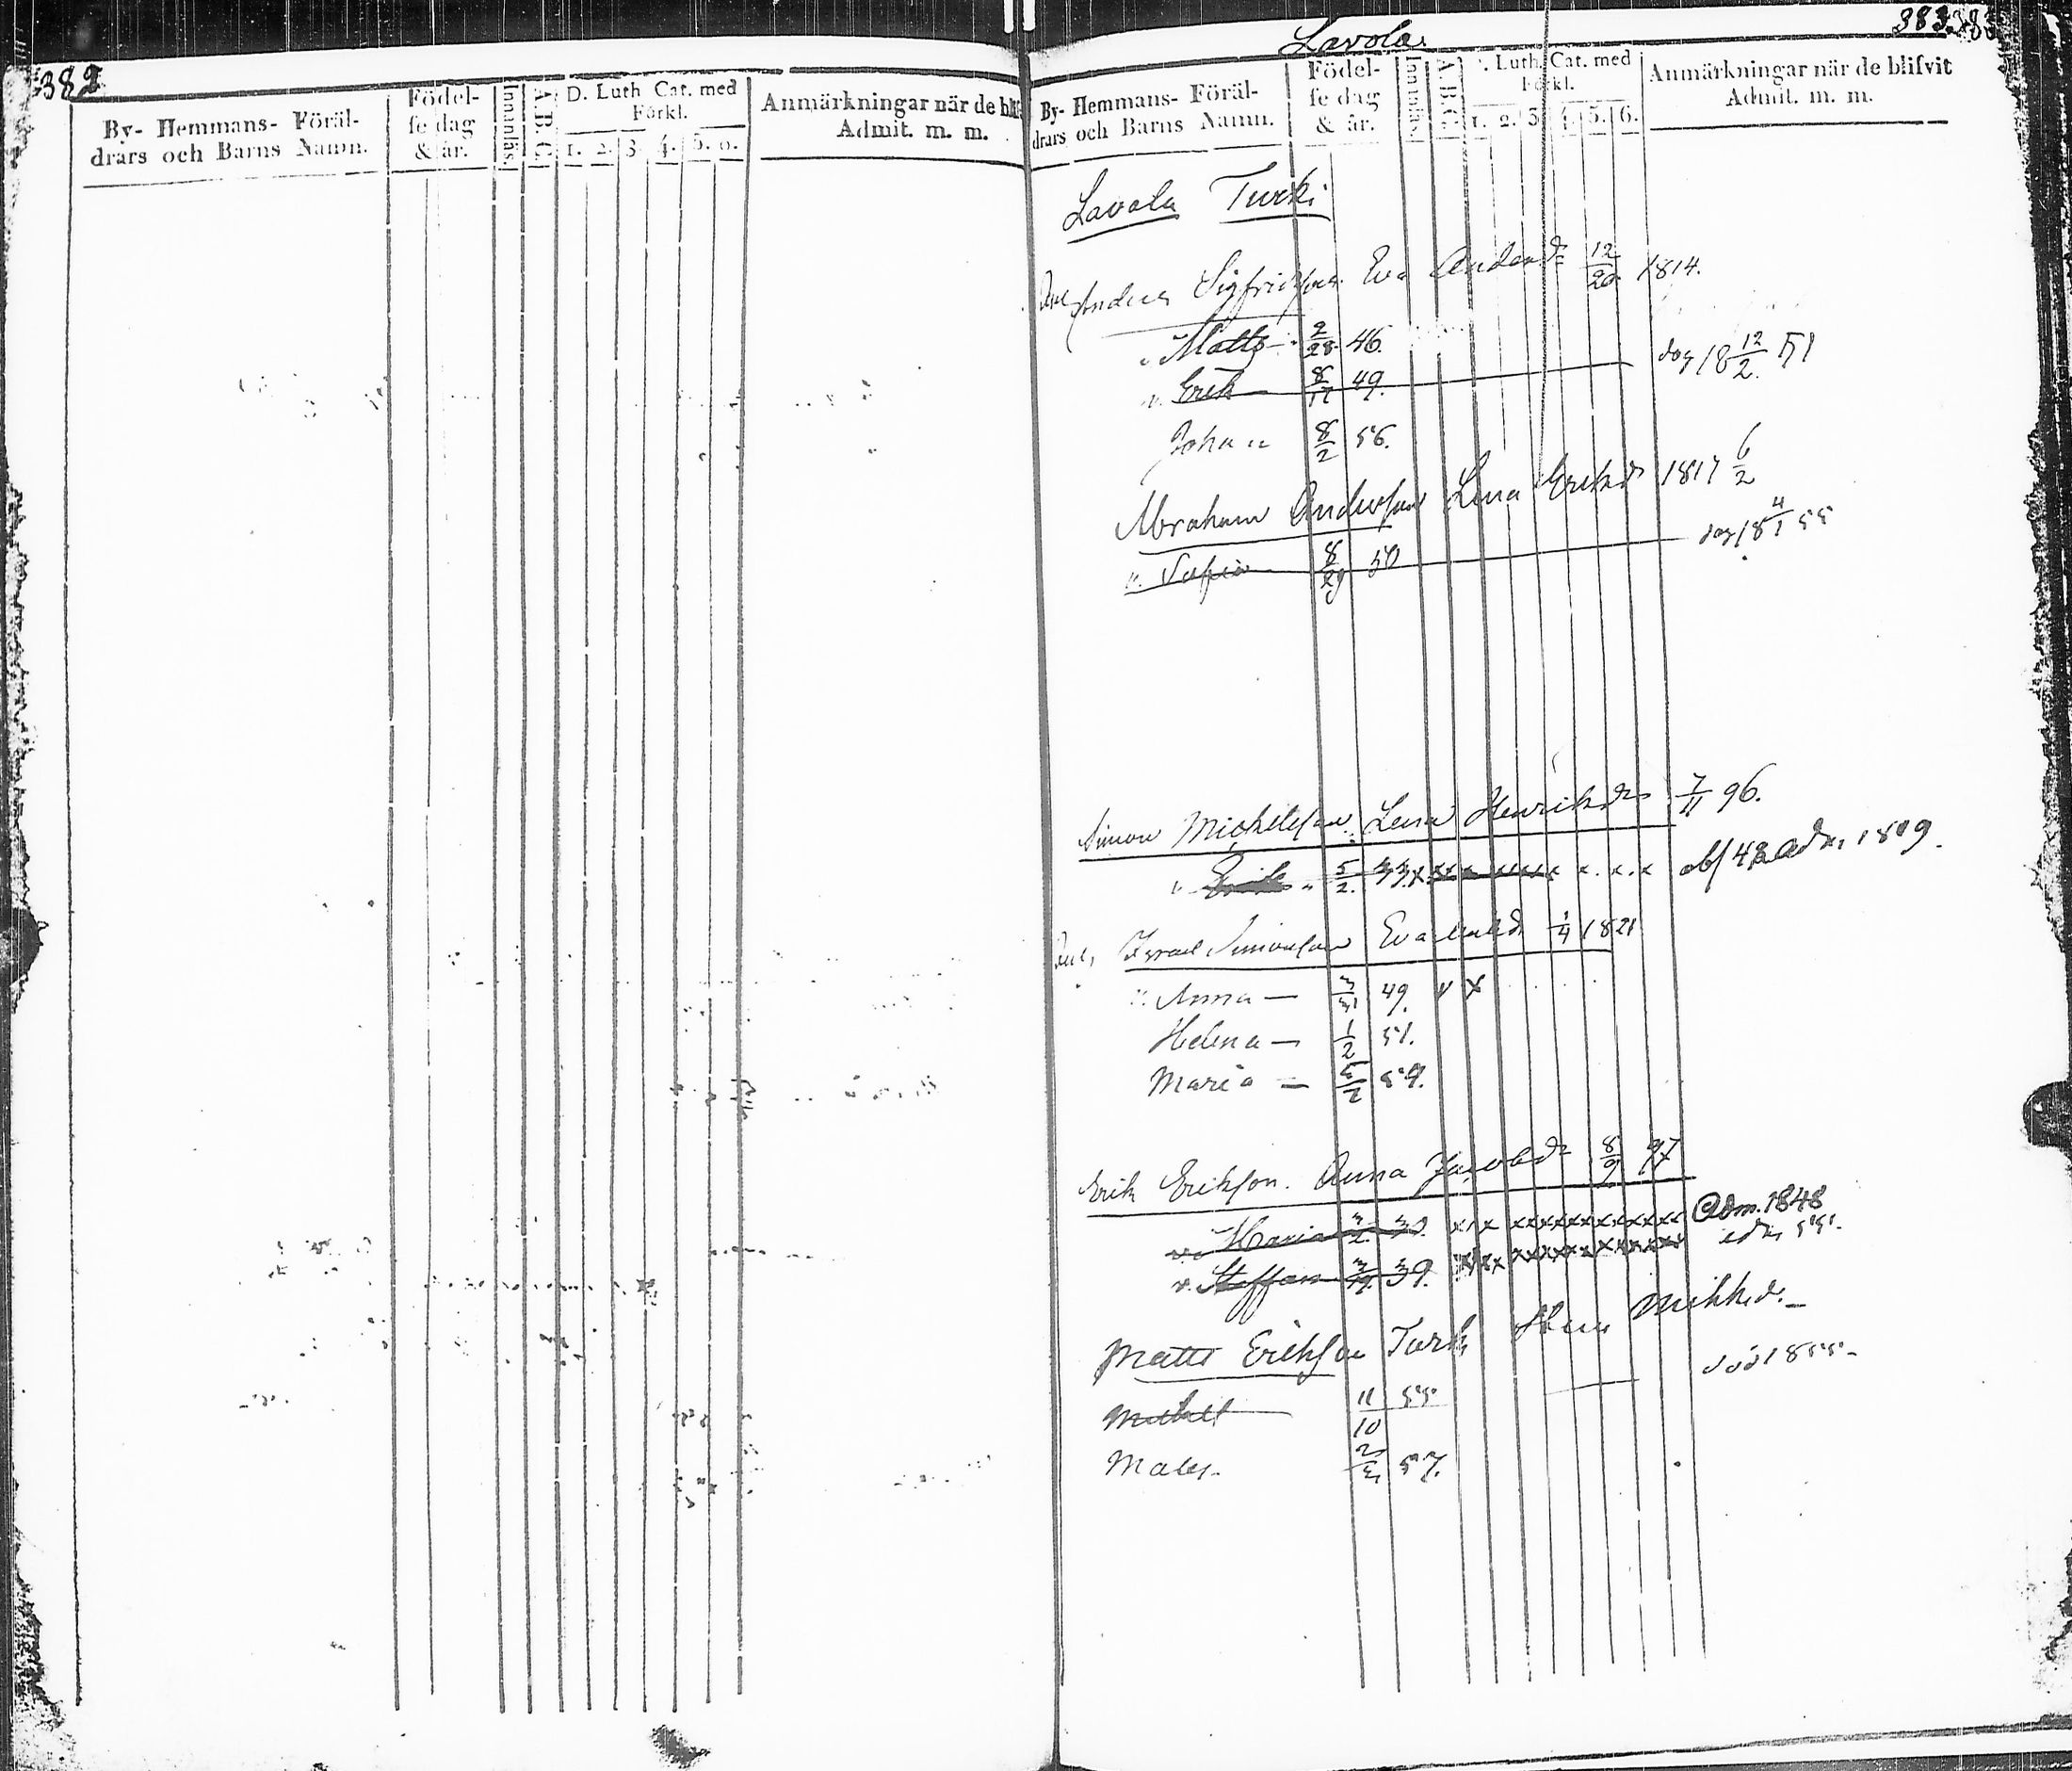 382
By- Hemmans- Föräl-
drars och Barns Namn.
Födel-
se dag
& år.
Innanläs.
A.B.C.
D. Luth Cat. med
Förkl.
1. 2. 3 4. 5. 6.
Anmärkningar när de bli
Admit. m. m.
Lavola
383
By- Hemmans- Föräl-
drars och Barns Namn.
Födel-
se dag
& år.
Innanläs.
A.B.C.
Luth. Cat. med
Förkl.
1. 2. 3 4. 5. 6.
Anmärkningar när de blifvit
Admit. m. m.
Lavola Turki
Anders Sigfridson Eva Andersd 12/20 1814.
" Matts 2/28 46.
" Erik 8/17 49. 18 12/2 51
Johan 8/2 56.
Abraham Anderson Lena Eriksd 1817 6/2
" Sofia 8/29 50 18 4/1 55
Simon Michelson Lena Henriksdr 7/11 96.
" Erik " 5/2. 33. x x x x
Israel Simonson Eva 1/4 1821
" Anna — 49. v x
Helena — 1/2 51.
Maria — 54.
Erik Erikson. Anna Jacobsdr 8/9 97
Maria x x x xxxxxxxxxxxx Adm. 1848
" Steffan 39. xxx xxxxxxxxxxxx 55.
Matts Erikson Turki Mikkd.
Michel 11/10 55 död 1855
Mates. 57.